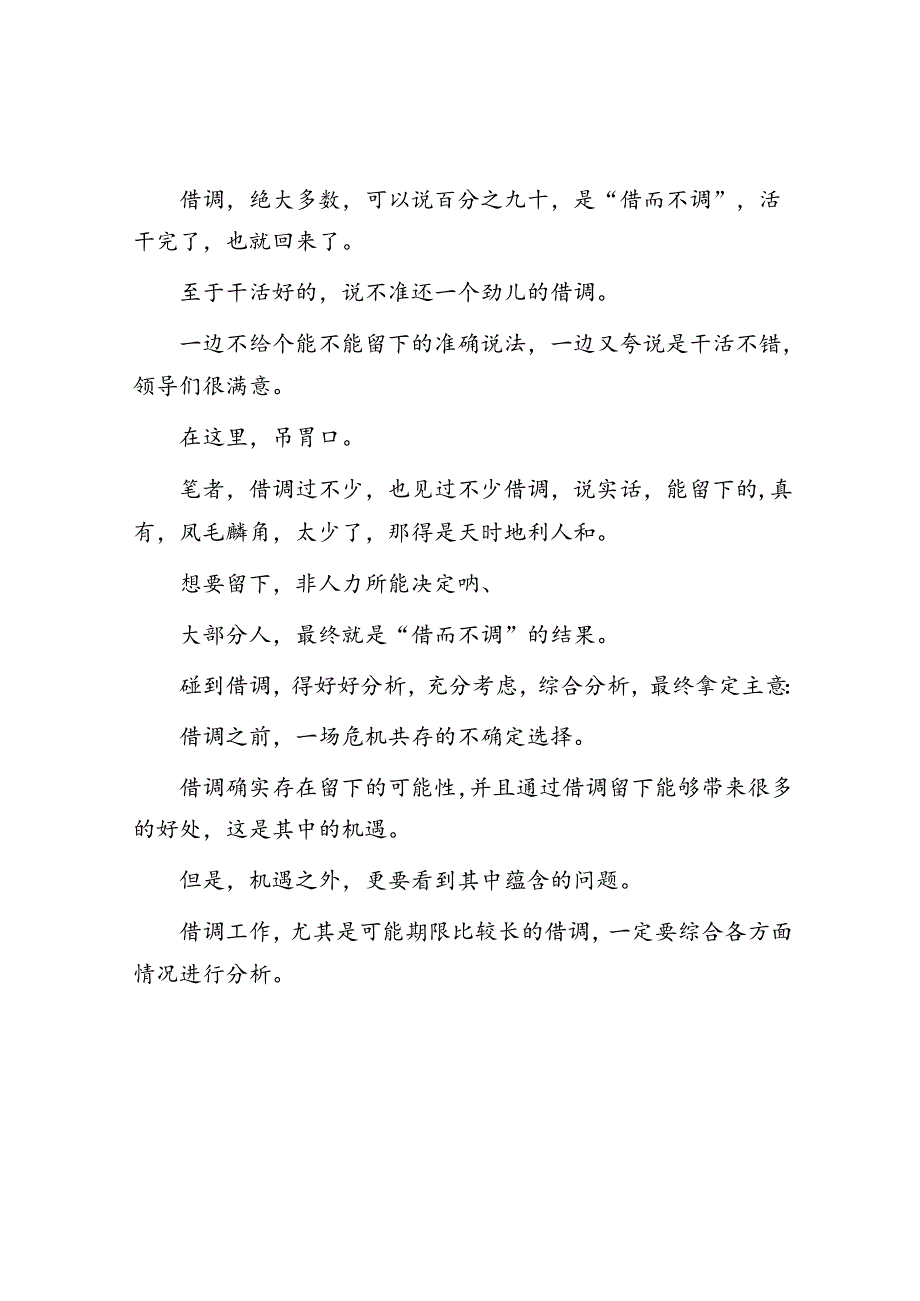 借调，绝大多数，可以说百分之九十，是“借而不调”，活
干完了，也就回来了。
至于干活好的，说不准还一个劲儿的借调。
一边不给个能不能留下的准确说法，一边又夸说是干活不错，
领导们很满意。
在这里，吊胃口。
笔者，借调过不少，也见过不少借调，说实话，能留下的，真
有，凤毛麟角，太少了，那得是天时地利人和。
想要留下，非人力所能决定呐、
大部分人，最终就是“借而不调”的结果。
碰到借调，得好好分析，充分考虑，综合分析，最终拿定主意：
借调之前，一场危机共存的不确定选择。
借调确实存在留下的可能性，并且通过借调留下能够带来很多
的好处，这是其中的机遇。
但是，机遇之外，更要看到其中蕴含的问题。
借调工作，尤其是可能期限比较长的借调，一定要综合各方面
情况进行分析。